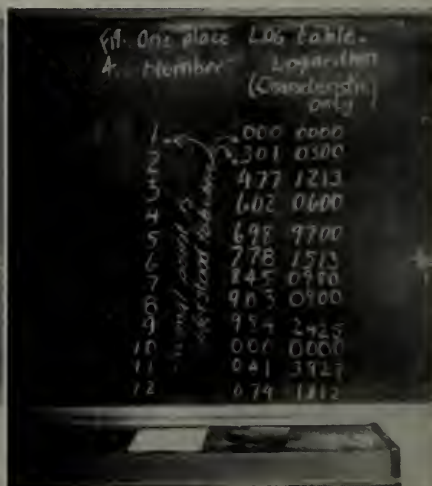 One place LOG table.
4. Number Logarithm
only
1 000 0000
2 .301 0300
3 477 1213
4 602 0600
5 698 9700
6 778 1513
7 845 0980
8 903 0900
9 954 2425
10 000 0000
11 041 3927
12 079 1812